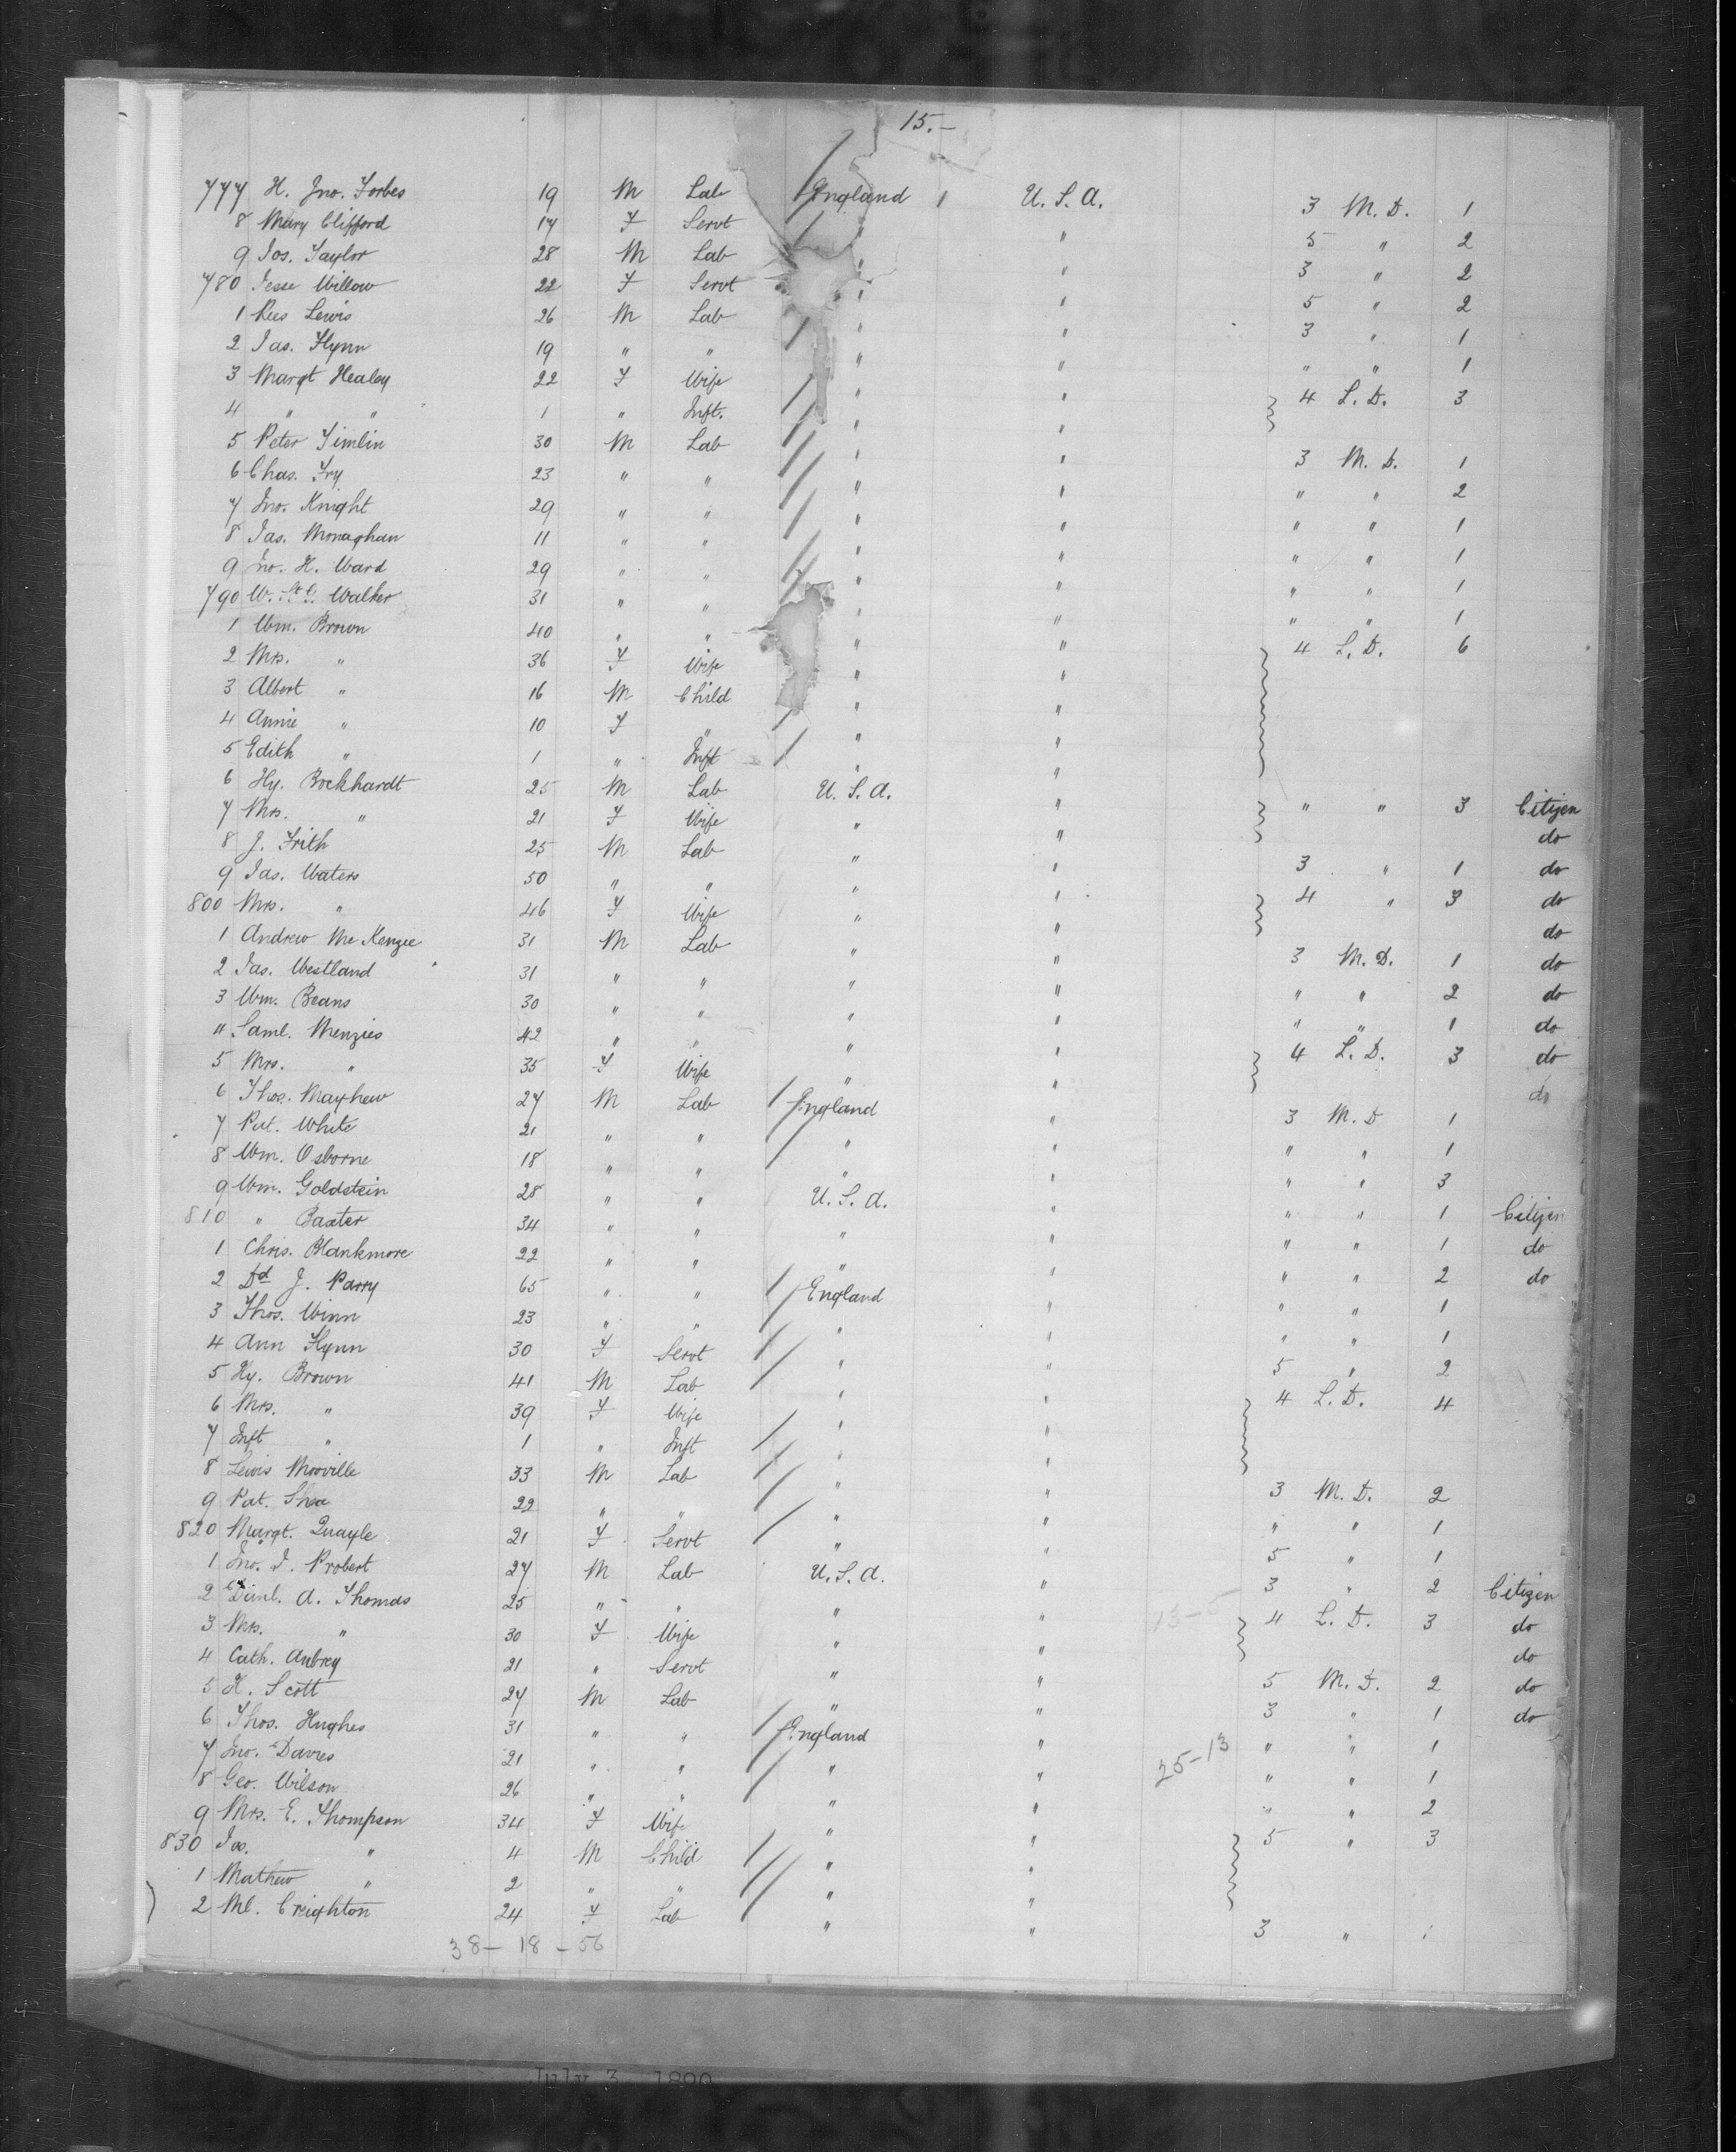 15.—
777 H. Jno. Forbes 19 M Lab England 1 U. S. A. 3 M. D. 1
8 Mary Clifford 17 F Servt " " 5 " 2
9 Jos. Taylor 28 M Lab " " 3 " 2
780 Jesse Willow 22 F Servt " " 5 " 2
1 Rees Lewis 26 M Lab " " 3 " 1
2 Jas. Flynn 19 " " " " " " 1
3 Margt Healey 22 F Wife " " 4 L. D. 3
4 " " 1 " Inft. " "
5 Peter Timlin 30 M Lab " " 3 M. D. 1
6 Chas. Fry 23 " " " " " " 2
7 Jno. Knight 29 " " " " " " 1
8 Jas. Monaghan 11 " " " " " " 1
9 Jno. H. Ward 29 " " " " " " 1
790 W. Walker 31 " " " " " " 1
1 Wm. Brown 40 " " " " 4 L. D. 6
2 Mrs. " 36 F Wife " "
3 Albert " 16 M Child " "
4 Annie " 10 F " " "
5 Edith " 1 " Inft " "
6 Hy. Bockhardt 25 M Lab U. S. A. " " " 3 Citizen
7 Mrs. " 21 F Wife " " do
8 J. Frith 25 M Lab " " 3 " 1 do
9 Jas. Waters 50 " " " " 4 " 3 do
800 Mrs. " 46 F Wife " " do
1 Andrew McKenzee 31 M Lab " " 3 M. D. 1 do
2 Jas. Westland 31 " " " " " " 2 do
3 Wm. Beans 30 " " " " " " 1 do
4 Saml. Menzies 42 " " " " 4 L. D. 3 do
5 Mrs. " 35 F Wife " " do
6 Thos. Mayhew 27 M Lab England " 3 M. D 1
7 Pat. White 21 " " " " " " 1
8 Wm. Osborne 18 " " " " " " 3
9 Wm. Goldstein 28 " " U. S. A. " " " 1 Citizen
810 " Baxter 34 " " " " " " 1 do
1 Chris. Blankmore 22 " " " " " " 2 do
2 Dd J. Parry 65 " " England " " " 1
3 Thos. Winn 23 " " " " " " 1
4 Ann Flynn 30 F Servt " " 5 " 2
5 Hy. Brown 41 M Lab " " 4 L. D. 4
6 Mrs. " 39 F Wife " "
7 Inft " 1 " Inft " "
8 Lewis Morville 33 M Lab " " 3 M. D. 2
9 Pat. Shea 22 " " " " " " 1
820 Margt. Quayle 21 F Servt " " 5 " 1
1 Jno. J. Probert 27 M Lab U. S. A. " 3 " 2 Citizen
2 Danl. A. Thomas 25 " " " " 13-5 4 L. D. 3 do
3 Mrs. " 30 F Wife " " do
4 Cath. Aubrey 21 " Servt " " 5 M. D. 2 do
5 H. Scott 27 M Lab " " 3 " 1 do
6 Thos. Hughes 31 " " England " " " 1
7 Jno. Davies 21 " " " " 25-13 " " 1
8 Geo. Wilson 26 " " " " " " 2
9 Mrs. E. Thompson 34 F Wife " " 5 " 3
830 Jas. " 4 M Child " "
1 Mathew " 2 " " " "
2 Ml. Creighton 24 F Lab " " 3 "
38 — 18 — 56
July 3, 1890